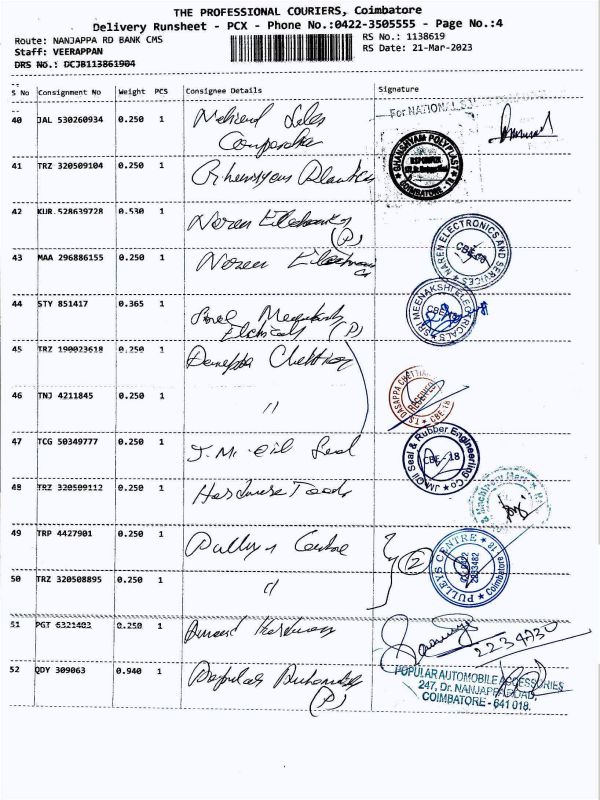 THE PROFESSIONAL COURIERS, Coimbatore
Delivery Runsheet - PCX - Phone No.:0422-3505555 - Page No.:4
Route: NANJAPPA RD BANK CMS
RS No.: 1138619
Staff: VEERAPPAN
RS Date: 21-Mar-2023
DRS No.: DCJB113861904
S No Consignment No Weight PCS Consignee Details Signature
40 JAL 530260934 0.250 1
For NATIONAL
GHANSHYAM POLYPLAST
COIMBATORE - 18
41 TRZ 320509104 0.250 1
42 KUR 528639728 0.530 1 Naren Electronics
(P)
43 MAA 296886155 0.250 1 Naren Electronics
NAREN ELECTRONICS AND SERVICES
44 STY 851417 0.365 1 Sree Meenakshi
Electricals (P)
SRI MEENAKSHI ELECTRICALS
CBE
45 TRZ 190023618 0.250 1 Chettiar
46 TNJ 4211845 0.250 1 "
T.S. DASAPPA CHETTIAR
RECEIVED
CBE-18
47 TCG 50349777 0.250 1 J.M. Oil Seal
JM Oil Seal & Rubber Engineering Co
CBE - 18
48 TRZ 320509112 0.250 1 Hardware Tools
Machinery Mart
49 TRP 4427901 0.250 1 Pulleys Centre
2
PULLEYS CENTRE
Coimbatore 18
50 TRZ 320508895 0.250 1 "
51 PGT 6321403 0.250 1 Hardware
2234730
52 QDY 309063 0.940 1 Popular Automobiles
(P)
POPULAR AUTOMOBILE ACCESSORIES
247, Dr. NANJAPPA ROAD,
COIMBATORE - 641 018.